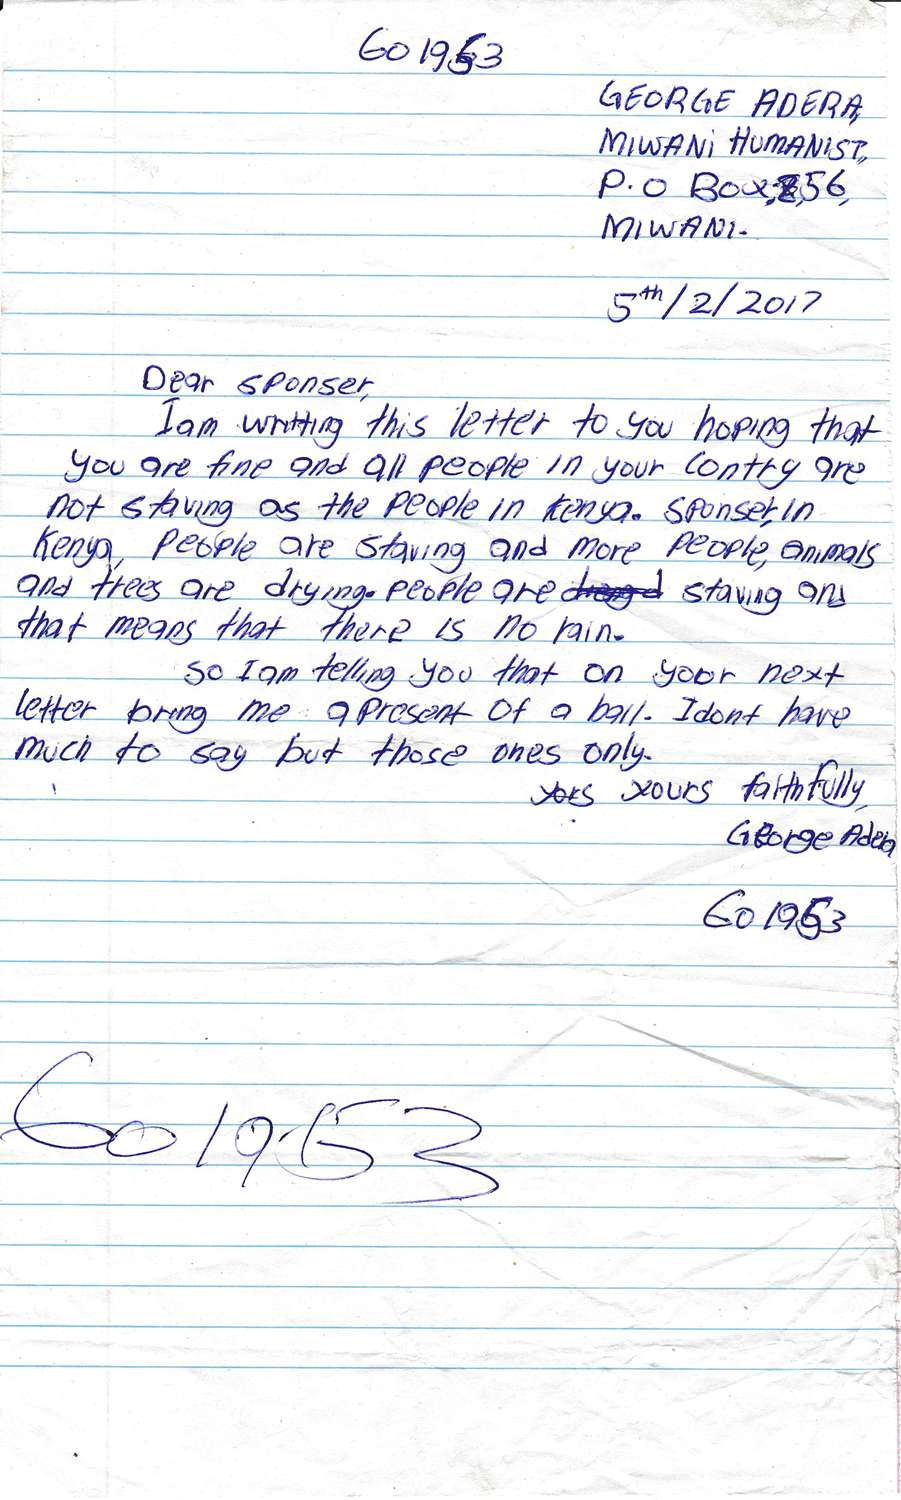 GO1953
GEORGE ADERA,
MIWANI HUMANIST,
P.O BOX, 56,
MIWANI.
5th/2/2017
Dear sponser,
I am writting this letter to you hoping that
you are fine and all people in your contry are
not staving as the people in Kenya. Sponser, in
Kenya, people are staving and more people, animals
and trees are drying. people are staving and
that means that there is no rain.
so I am telling you that on your next
letter bring me a present of a ball. I dont have
much to say but those ones only.
yours faithfully,
George Adera
GO1953
GO1953